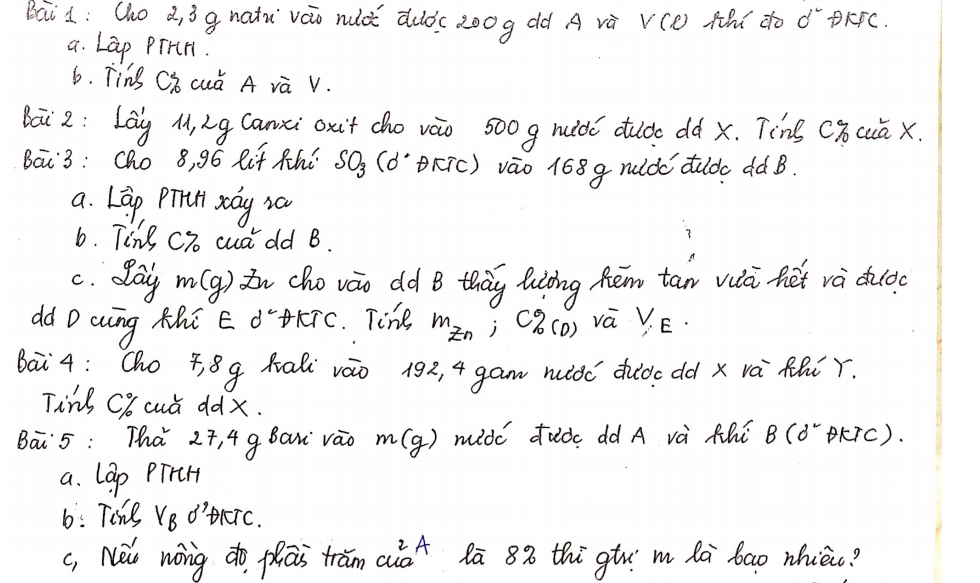 Bài 1 : Cho 2,3 g natri vào nước được 200 g dd A và V(l) khí đo ở ĐKTC.
a. Lập PTHH.
b. Tính C% của A và V.
Bài 2 : Lấy 11,2g Canxi oxit cho vào 500 g nước được dd X. Tính C% của X.
Bài 3 : Cho 8,96 lít khí SO3 (ở ĐKTC) vào 168 g nước được dd B.
a. Lập PTHH xảy ra
b. Tính C% của dd B.
c. Lấy m(g) Zn cho vào dd B thấy lượng kẽm tan vừa hết và được
dd D cùng khí E ở ĐKTC. Tính mZn ; C%(D) và VE.
Bài 4 : Cho 7,8 g kali vào 192,4 gam nước được dd X và khí Y.
Tính C% của dd X.
Bài 5 : Thả 27,4 g Bari vào m(g) nước được dd A và khí B (ở ĐKTC).
a. Lập PTHH
b. Tính VB ở ĐKTC.
c, Nếu nồng độ phần trăm của A là 8% thì gtrị m là bao nhiêu?